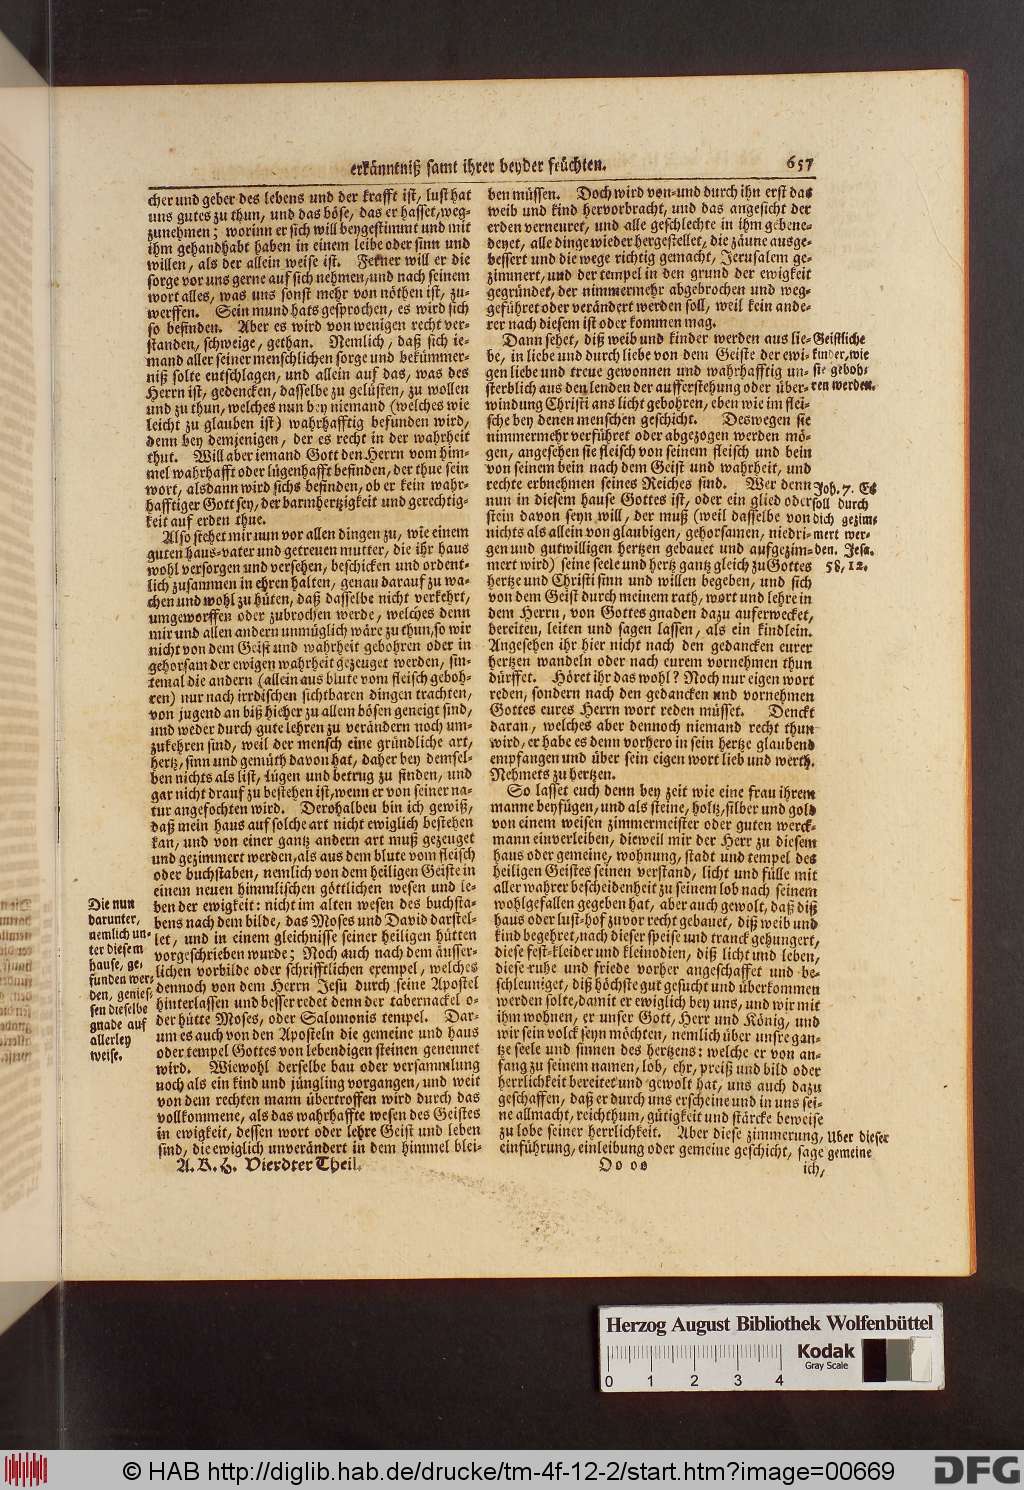 erkänntniß samt ihrer beyder früchten. 657
cher und geber des lebens und der krafft ist, lust hat
uns gutes zu thun, und das böse, das er hasset, weg-
zunehmen; worinn er sich will beygestimmt und mit
ihm gehandhabt haben in einem leibe oder sinn und
willen, als der allein weise ist. Ferner will er die
sorge vor uns gerne auf sich nehmen, und nach seinem
wort alles, was uns sonst mehr von nöthen ist, zu-
werffen. Sein mund hats gesprochen, es wird sich
so befinden. Aber es wird von wenigen recht ver-
standen, schweige, gethan. Nemlich, daß sich ie-
mand aller seiner menschlichen sorge und bekümmer-
niß solte entschlagen, und allein auf das, was des
Herrn ist, gedencken, dasselbe zu gelüsten, zu wollen
und zu thun, welches nun bey niemand (welches wie
leicht zu glauben ist) wahrhafftig befunden wird,
denn bey demjenigen, der es recht in der wahrheit
thut. Will aber iemand Gott den Herrn vom him-
mel wahrhafft oder lügenhafft befinden, der thue sein
wort, alsdann wird sichs befinden, ob er kein wahr-
hafftiger Gott sey, der barmhertzigkeit und gerechtig-
keit auf erden thue.
Also stehet mir nun vor allen dingen zu, wie einem
guten haus-vater und getreuen mutter, die ihr haus
wohl versorgen und versehen, beschicken und ordent-
lich zusammen in ehren halten, genau darauf zu wa-
chen und wohl zu hüten, daß dasselbe nicht verkehrt,
umgeworffen oder zubrochen werde, welches denn
mir und allen andern unmüglich wäre zu thun, so wir
nicht von dem Geist und wahrheit gebohren oder in
gehorsam der ewigen wahrheit gezeuget werden, sin-
temal die andern (allein aus blute vom fleisch geboh-
ren) nur nach irrdischen sichtbaren dingen trachten,
von jugend an biß hieher zu allem bösen geneigt sind,
und weder durch gute lehren zu verändern noch um-
zukehren sind, weil der mensch eine gründliche art,
hertz, sinn und gemüth davon hat, daher bey demsel-
ben nichts als list, lügen und betrug zu finden, und
gar nicht drauf zu bestehen ist, wenn er von seiner na-
tur angefochten wird. Derohalben bin ich gewiß,
daß mein haus auf solche art nicht ewiglich bestehen
kan, und von einer gantz andern art muß gezeuget
und gezimmert werden, als aus dem blute vom fleisch
oder buchstaben, nemlich von dem heiligen Geiste in
einem neuen himmlischen göttlichen wesen und le-
ben der ewigkeit: nicht im alten wesen des buchsta-
bens nach dem bilde, das Moses und David darstel-
let, und in einem gleichnisse seiner heiligen hütten
vorgeschrieben wurde; Noch auch nach dem äusser-
lichen vorbilde oder schrifftlichen exempel, welches
dennoch von dem Herrn Jesu durch seine Apostel
hinterlassen und besser redet denn der tabernackel o-
der hütte Moses, oder Salomonis tempel. Dar-
um es auch von den Aposteln die gemeine und haus
oder tempel Gottes von lebendigen steinen genennet
wird. Wiewohl derselbe bau oder versammlung
noch als ein kind und jüngling vorgangen, und weit
von dem rechten mann übertroffen wird durch das
vollkommene, als das wahrhaffte wesen des Geistes
in ewigkeit, dessen wort oder lehre Geist und leben
sind, die ewiglich unverändert in dem himmel blei-
A. K. H. Vierdter Theil.
Die nun
darunter,
nemlich un-
ter diesem
hause, ge-
funden wer-
den, genies-
sen dieselbe
gnade auf
allerley
weise.
ben müssen. Doch wird von- und durch ihn erst das
weib und kind hervorbracht, und das angesicht der
erden verneuret, und alle geschlechte in ihm gebene-
deyet, alle dinge wieder hergestellet, die zäune ausge-
bessert und die wege richtig gemacht, Jerusalem ge-
zimmert, und der tempel in den grund der ewigkeit
gegründet, der nimmermehr abgebrochen und weg-
geführet oder verändert werden soll, weil kein ande-
rer nach diesem ist oder kommen mag.
Dann sehet, diß weib und kinder werden aus lie-
be, in liebe und durch liebe von dem Geiste der ewi-
gen liebe und treue gewonnen und wahrhafftig un-
sterblich aus den lenden der aufferstehung oder über-
windung Christi ans licht gebohren, eben wie im flei-
sche bey denen menschen geschicht. Deswegen sie
nimmermehr verführet oder abgezogen werden mö-
gen, angesehen sie fleisch von seinem fleisch und bein
von seinem bein nach dem Geist und wahrheit, und
rechte erbnehmen seines Reiches sind. Wer denn
nun in diesem hause Gottes ist, oder ein glied oder
stein davon seyn will, der muß (weil dasselbe von
nichts als allein von glaubigen, gehorsamen, niedri-
gen und gutwilligen hertzen gebauet und aufgezim-
mert wird) seine seele und hertz gantz gleich zu Gottes
hertze und Christi sinn und willen begeben, und sich
von dem Geist durch meinem rath, wort und lehre in
dem Herrn, von Gottes gnaden dazu auferwecket,
bereiten, leiten und sagen lassen, als ein kindlein.
Angesehen ihr hier nicht nach den gedancken eurer
hertzen wandeln oder nach eurem vornehmen thun
dürffet. Höret ihr das wohl? Noch nur eigen wort
reden, sondern nach den gedancken und vornehmen
Gottes eures Herrn wort reden müsset. Denckt
daran, welches aber dennoch niemand recht thun
wird, er habe es denn vorhero in sein hertze glaubend
empfangen und über sein eigen wort lieb und werth.
Nehmets zu hertzen.
So lasset euch denn bey zeit wie eine frau ihrem
manne beyfügen, und als steine, holtz, silber und gold
von einem weisen zimmermeister oder guten werck-
mann einverleiben, dieweil mir der Herr zu diesem
haus oder gemeine, wohnung, stadt und tempel des
heiligen Geistes seinen verstand, licht und fülle mit
aller wahrer bescheidenheit zu seinem lob nach seinem
wohlgefallen gegeben hat, aber auch gewolt, daß diß
haus oder lust-hof zuvor recht gebauet, diß weib und
kind begehret, nach dieser speise und tranck gehungert,
diese fest-kleider und kleinodien, diß licht und leben,
diese ruhe und friede vorher angeschaffet und be-
schleuniget, diß höchste gut gesucht und überkommen
werden solte, damit er ewiglich bey uns, und wir mit
ihm wohnen, er unser Gott, Herr und König, und
wir sein volck seyn möchten, nemlich über unsre gan-
tze seele und sinnen des hertzens: welche er von an-
fang zu seinem namen, lob, ehr, preiß und bild oder
herrlichkeit bereitet und gewolt hat, uns auch dazu
geschaffen, daß er durch uns erscheine und in uns sei-
ne allmacht, reichthum, gütigkeit und stärcke beweise
zu lobe seiner herrlichkeit. Aber diese zimmerung,
einführung, einleibung oder gemeine geschicht, sage
Oo oo ich,
Geistliche
kinder, wie
sie geboh-
ren werden.
Joh. 7. Es
soll durch
dich gezim-
mert wer-
den. Jesa.
58, 12.
Uber dieser
gemeine
Herzog August Bibliothek Wolfenbüttel
Kodak
Gray Scale
0 1 2 3 4
© HAB http://diglib.hab.de/drucke/tm-4f-12-2/start.htm?image=00669
DFG